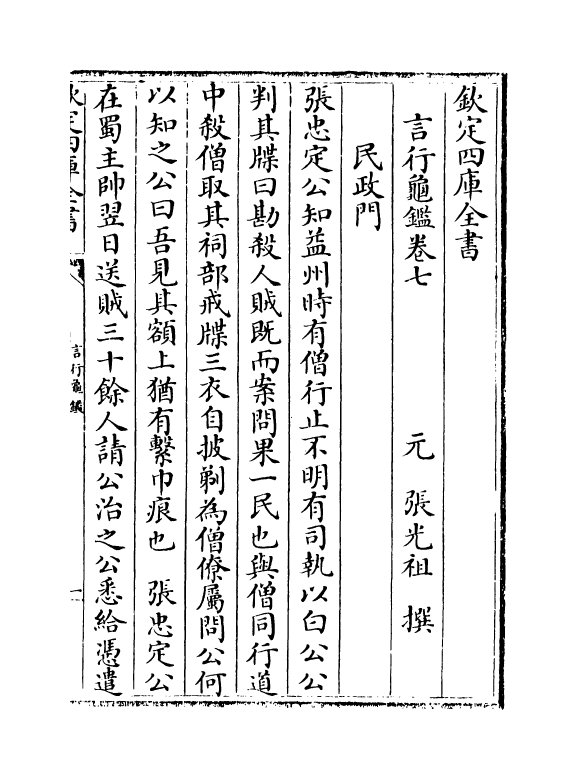 欽定四庫全書
言行龜鑑卷七
元　張光祖　撰
民政門
張忠定公知益州時有僧行止不明有司執以白公公
判其牒曰勘殺人賊既而案問果一民也與僧同行道
中殺僧取其祠部戒牒三衣自披剃為僧僚屬問公何
以知之公曰吾見其額上猶有繫巾痕也　張忠定公
在蜀主帥翌日送賊三十餘人請公治之公悉給憑遣
欽定四庫全書
言行龜鑑
一